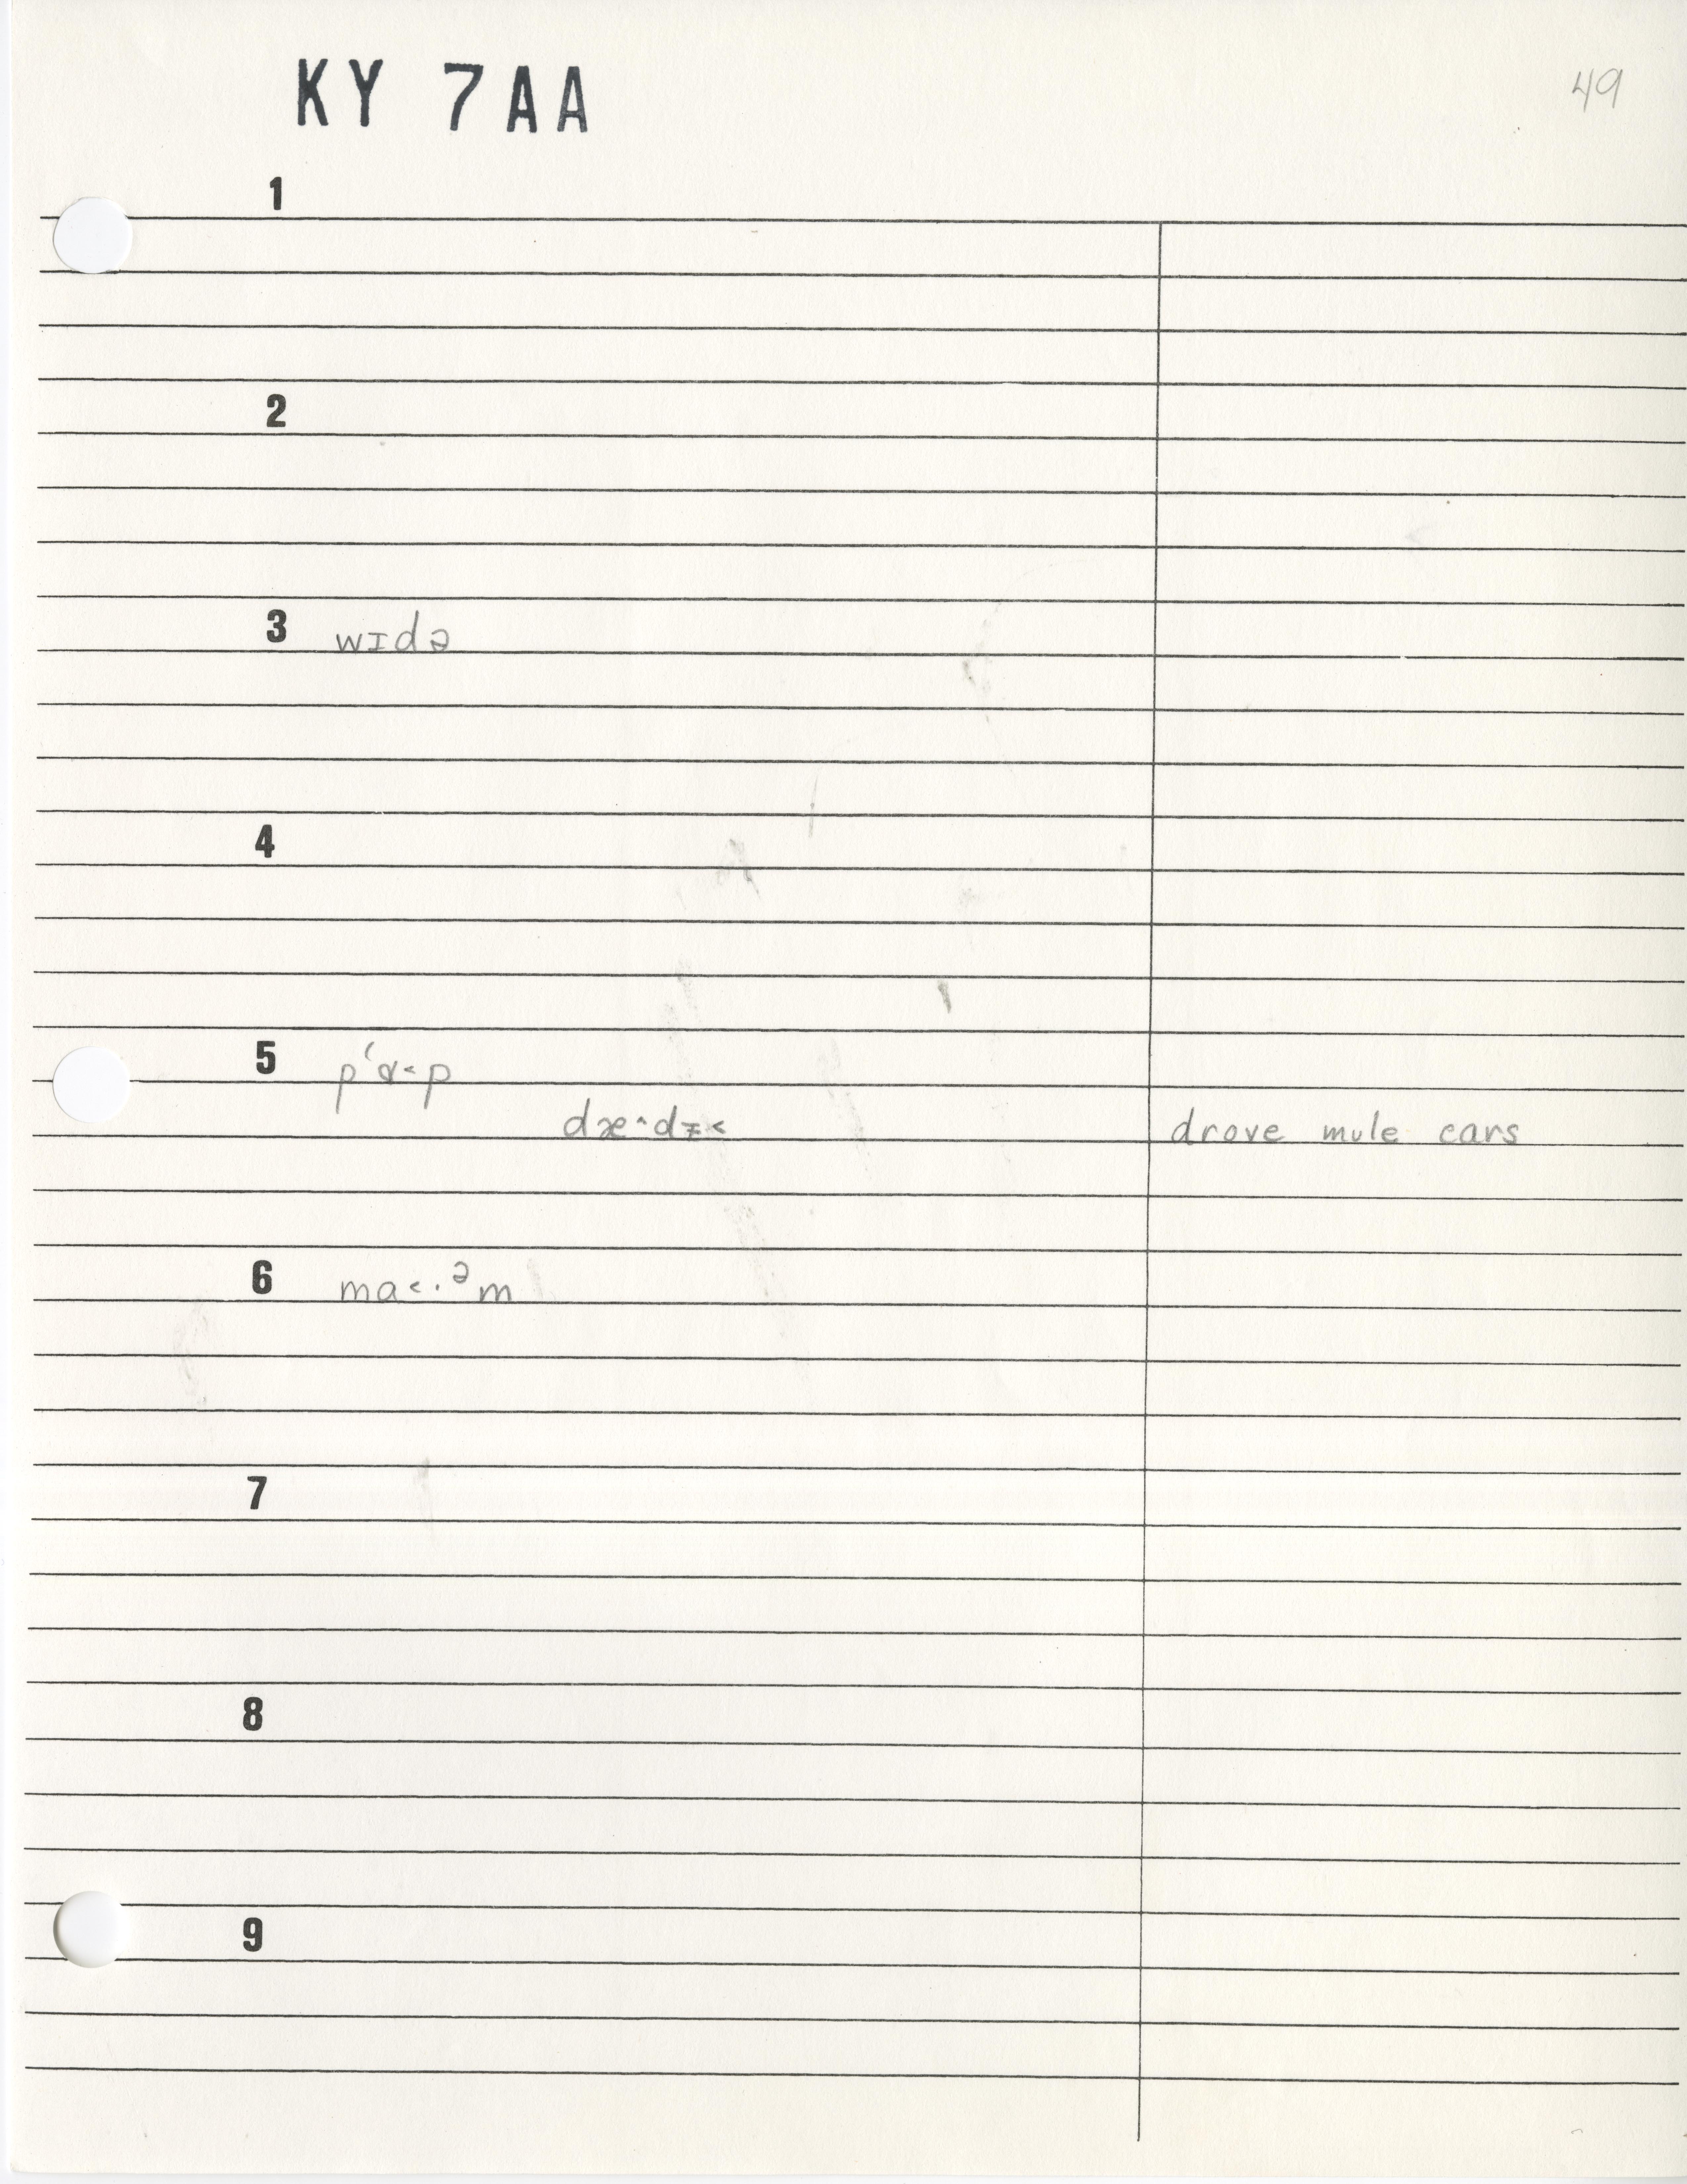 KY 7AA
49
1
2
3 wɪdə
4
5 pʻɑ˂p
dæ˄dɪ̵˂ drove mule cars
6 ma˂·ᵊm
7
8
9